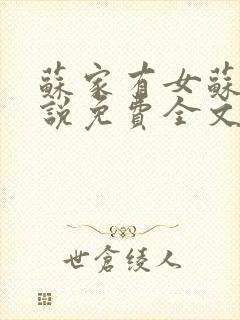 蘇家有女蘇
說免費全文
世倉綾人